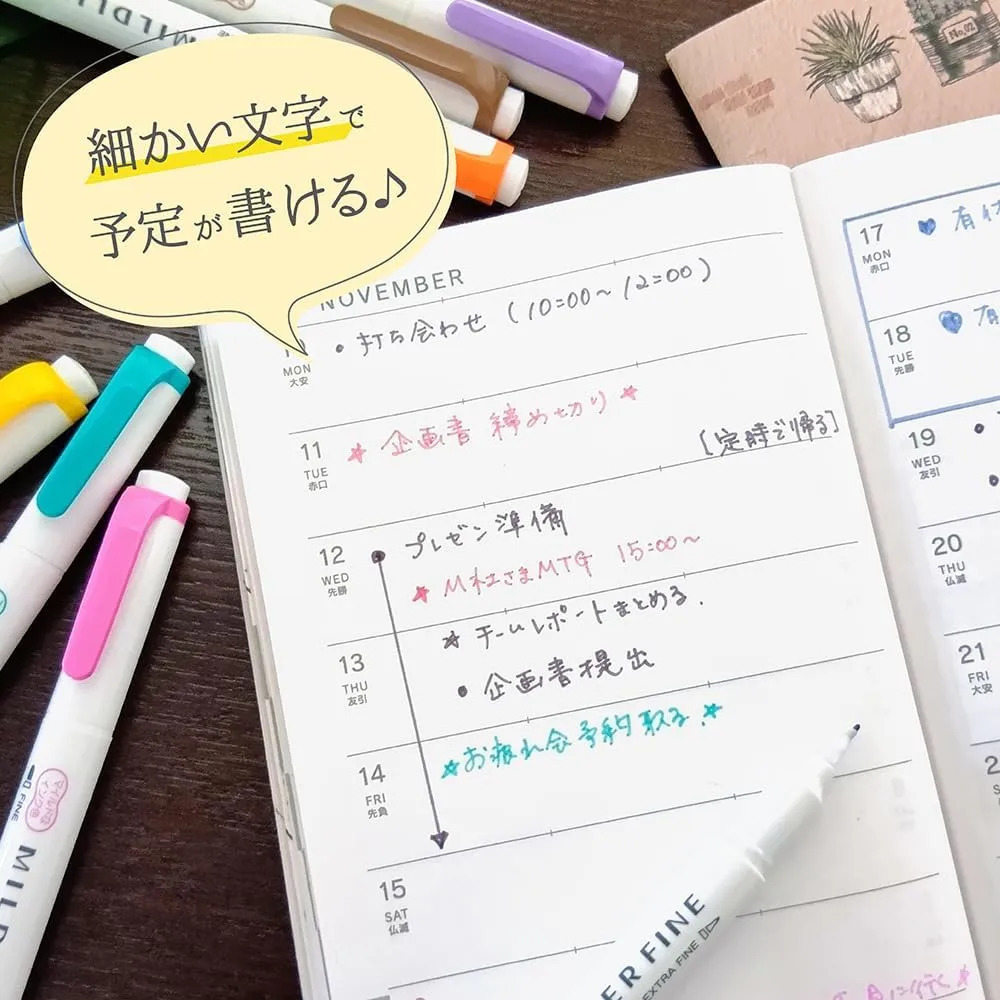 細かい文字で
予定が書ける♪
No.02
NOVEMBER
MON
大安
• 打ち合わせ (10:00〜12:00)
11
TUE
赤口
★ 企画書 締め切り ★
[定時で帰る]
12
WED
先勝
プレゼン準備
★ M社さまMTG 15:00〜
★ チームレポートまとめる.
13
THU
友引
• 企画書提出
★お疲れ会予約取る.★
14
FRI
先負
15
SAT
仏滅
17
MON
赤口
18
TUE
先勝
19
WED
友引
20
THU
仏滅
21
FRI
大安
FINE
マイルドな
インク色
MILD
ER FINE
EXTRA FINE
MILDLI